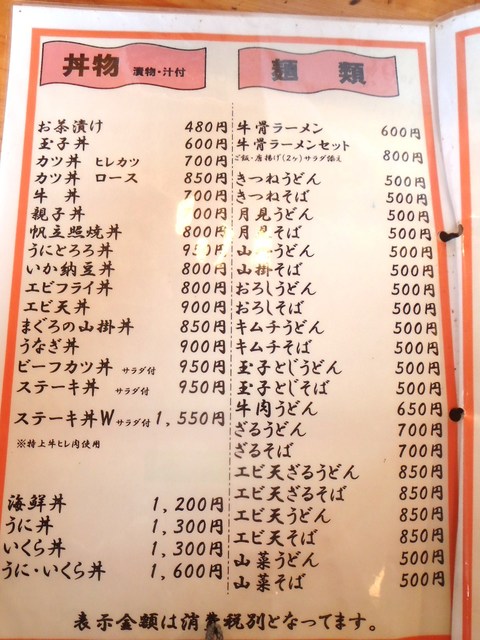 丼物 漬物・汁付
お茶漬け 480円
玉子丼 600円
カツ丼 ヒレカツ 700円
カツ丼 ロース 850円
牛丼 700円
親子丼 00円
帆立照焼丼 800円
うにとろろ丼 950円
いか納豆丼 800円
エビフライ丼 800円
エビ天丼 900円
まぐろの山掛丼 850円
うなぎ丼 900円
ビーフカツ丼 サラダ付 950円
ステーキ丼 サラダ付 950円
ステーキ丼W サラダ付 1,550円
※特上牛ヒレ肉使用
海鮮丼 1,200円
うに丼 1,300円
いくら丼 1,300円
うに・いくら丼 1,600円
麺類
牛骨ラーメン 600円
牛骨ラーメンセット 800円
ご飯・唐揚げ(2ヶ)サラダ添え
きつねうどん 500円
きつねそば 500円
月見うどん 500円
月見そば 500円
山 うどん 500円
山掛そば 500円
おろしうどん 500円
おろしそば 500円
キムチうどん 500円
キムチそば 500円
玉子とじうどん 500円
玉子とじそば 500円
牛肉うどん 650円
ざるうどん 700円
ざるそば 700円
エビ天ざるうどん 850円
エビ天ざるそば 850円
エビ天うどん 850円
エビ天そば 850円
山菜うどん 500円
山菜そば 500円
表示金額は消費税別となってます。